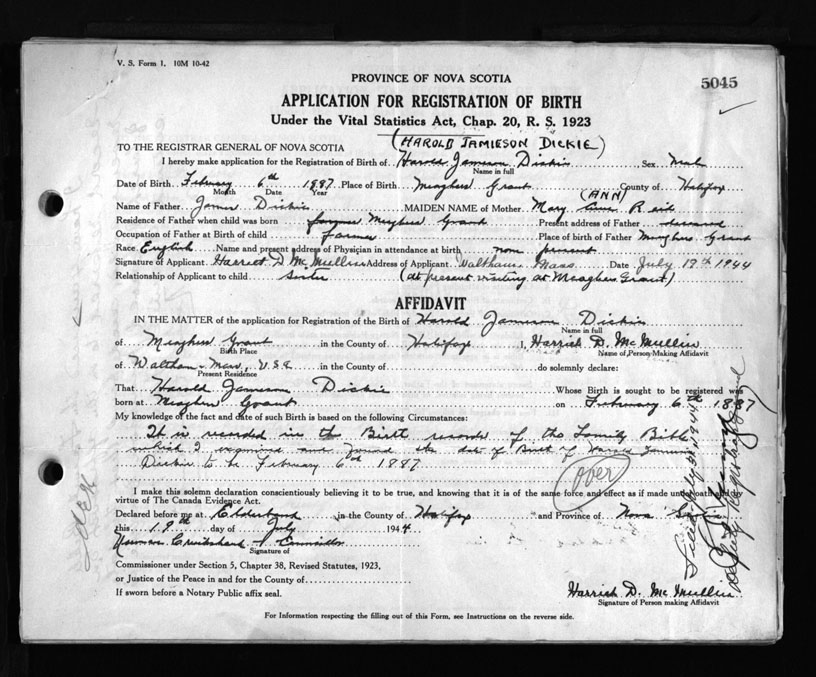 V. S. Form 1. 10M 10-42
PROVINCE OF NOVA SCOTIA
5045
APPLICATION FOR REGISTRATION OF BIRTH
Under the Vital Statistics Act, Chap. 20, R. S. 1923
(HAROLD JAMIESON DICKIE)
TO THE REGISTRAR GENERAL OF NOVA SCOTIA
I hereby make application for the Registration of Birth of Harold Jamieson Dickie Sex Male
Name in full
Date of Birth February 6th 1887 Place of Birth Meaghers Grant County of Halifax
Month Date Year
(ANN)
Name of Father James Dickie MAIDEN NAME of Mother Mary Reid
Residence of Father when child was born Meaghers Grant Present address of Father deceased
Occupation of Father at Birth of child Farmer Place of birth of Father Meaghers Grant
Race English Name and present address of Physician in attendance at birth none present
Signature of Applicant Harriet D. McMullin Address of Applicant Waltham Mass Date July 19th 1944
Relationship of Applicant to child Sister (at present visiting at Meaghers Grant)
AFFIDAVIT
IN THE MATTER of the application for Registration of the Birth of Harold Jamieson Dickie
Name in full
of Meaghers Grant in the County of Halifax I, Harriet D. McMullin
Birth Place Name of Person Making Affidavit
of Waltham Mass, U.S.A do solemnly declare:
Present Residence
That Harold Jamieson Dickie Whose Birth is sought to be registered was
born at Meaghers Grant on February 6th 1887
My knowledge of the fact and date of such Birth is based on the following Circumstances:
It is recorded in the Birth records of the Family Bible
which I examined and found the date of Birth of Harold Jamieson
Dickie to be February 6th 1887
(over)
I make this solemn declaration conscientiously believing it to be true, and knowing that it is of the same force and effect as if made under oath and by
virtue of The Canada Evidence Act.
Declared before me at Elderbank in the County of Halifax and Province of Nova Scotia
this 19th day of July 1944
Norman Cruikshank Councillor
Signature of
Commissioner under Section 5, Chapter 38, Revised Statutes, 1923,
or Justice of the Peace in and for the County of
If sworn before a Notary Public affix seal.
Harriet D. McMullin
Signature of Person making Affidavit
For Information respecting the filling out of this Form, see Instructions on the reverse side.
Deputy Registrar General